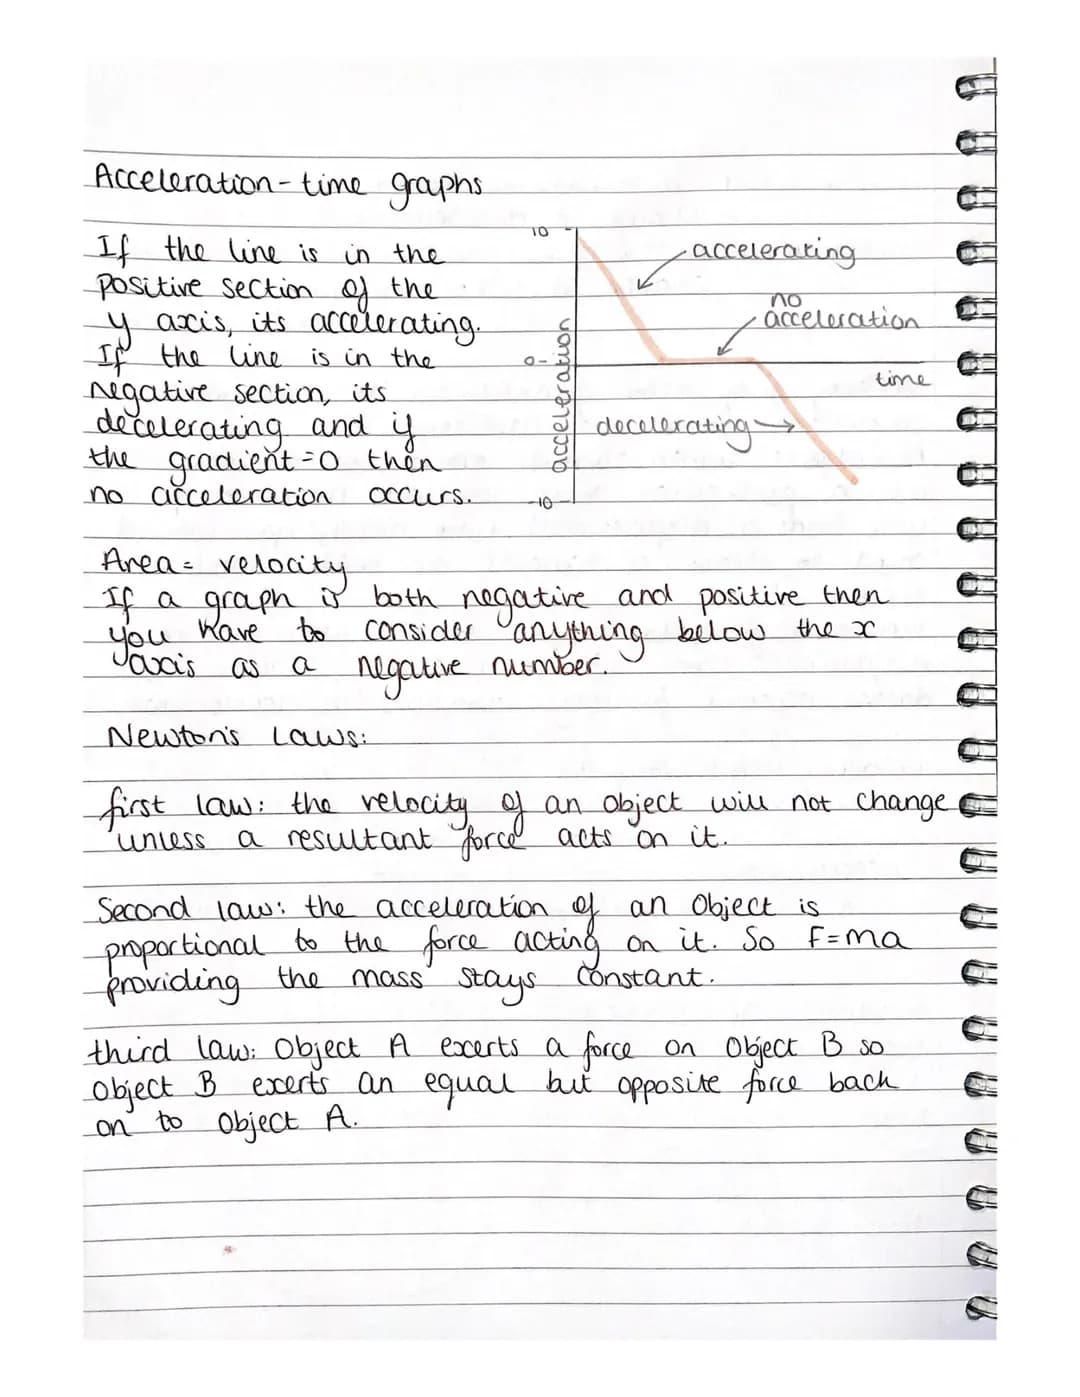 Acceleration-time graphs
If the line is in the
positive section of the
y axis, its accelerating.
If the line is in the
negative section, its
decelerating and if
the gradient=0 then
no acceleration occurs.
10
accelerating
no
acceleration
0
acceleration
time
decelerating
-10
Area= velocity
If a graph is both negative and positive then
you have to consider anything below the x
axis as a negative number.
Newton's Laws:
first law: the velocity of an object will not change
unless a resultant force acts on it.
Second law: the acceleration of an object is
proportional to the force acting on it. So F=ma
providing the mass stays constant.
third law: Object A exerts a force on Object B so
Object B exerts an equal but opposite force back
on to Object A.